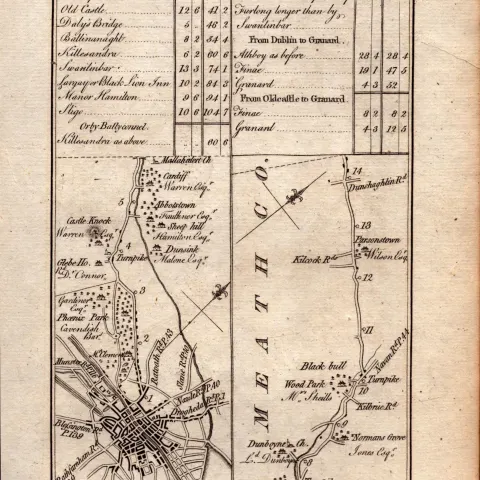 Old Castle 12 6 41 2
Daly's Bridge 5 .. 46 2
Ballinanaght 8 2 54 4
Killesandra 6 2 60 6
Swanlinbar 13 3 74 1
Largay or Black Lion Inn 10 2 84 3
Manor Hamilton 9 6 94 1
Sligo 10 6 104 7
Or by Ballyconnel
Killesandra as above 60 6
Furlong longer than by
Swanlinbar
From Dublin to Granard
Athboy as before 28 4 28 4
Finae 19 1 47 5
Granard 4 3 52
From Oldcastle to Granard
Finae 8 2 8 2
Granard 4 3 12 5
Mullahidert Ch.
Cardiff
Warren Esqr.
5
Abbotstown
Faulkner Esqr.
Sheep hill
Hamilton Esqr.
Castle Knock
Warren Esqr.
4
Dunsink
Malone Esqr.
Turnpike
Glebe Ho.
Rd. Dr. Connor
3
Gardiner Esqr.
Phœnix Park
Cavendish
Bar.
2
Mr. Clements
Ratoath Rd. P. 43
Slane Rd. P. 19
Munster Rd.
Navle Rd. P. 40
Drogheda Rd. P. 1
1
Blessington Rd.
P. 139
Rathfarnham Rd.
MEATH CO.
14
Dunshaghlin Rd.
13
Parsonstown
Wilson Esqr.
Kilcock Rd.
12
11
Navan Rd. P. 44
Black bull
Turnpike
Wood Park
Mrs. Sheills
10
Kilbrue Rd.
9
Normans Grove
Jones Esqr.
Dunboyne Ch.
Ld. Dunboyne
8